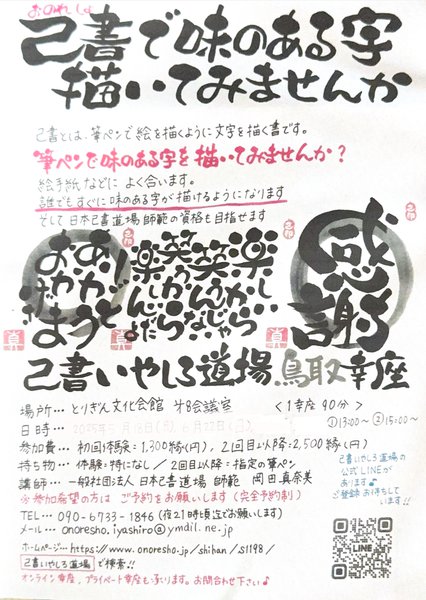 おのれしょ
己書で味のある字
描いてみませんか
己書とは、筆ペンで絵を描くように文字を描く書です。
筆ペンで味のある字を描いてみませんか?
絵手紙などによく合います。
誰でもすぐに味のある字が描けるようになります
そして日本己書道場師範の資格も目指せます
感謝
楽しいから
笑うんじゃなく
笑うから
楽しいんだよ
ありがとう
おかげさま
己書いやしろ道場 鳥取幸座
場所… とりぎん文化会館 第8会議室 <1幸座 90分>
日時… 2025年5月18日(日) 6月22日(日) ①13:00〜 ②15:00〜
参加費… 初回体験=1,300縁(円)、2回目以降=2,500縁(円)
持ち物… 体験=特になし/2回目以降=指定の筆ペン
講師… 一般社団法人 日本己書道場 師範 岡田真奈美
※参加希望の方は ご予約をお願いします(完全予約制)
TEL… 090-6733-1846(夜21時頃迄でお願いします)
メール… onoresho.iyashiro@ymail.ne.jp
己書いやしろ道場の
公式LINEが
あります♪
ご登録お待ちして
います!!
LINE
ホームページ…https://www.onoresho.jp/shihan/s1198/
己書いやしろ道場で検索!!
オンライン幸座、プライベート幸座も承ります。お問合わせ下さい♪